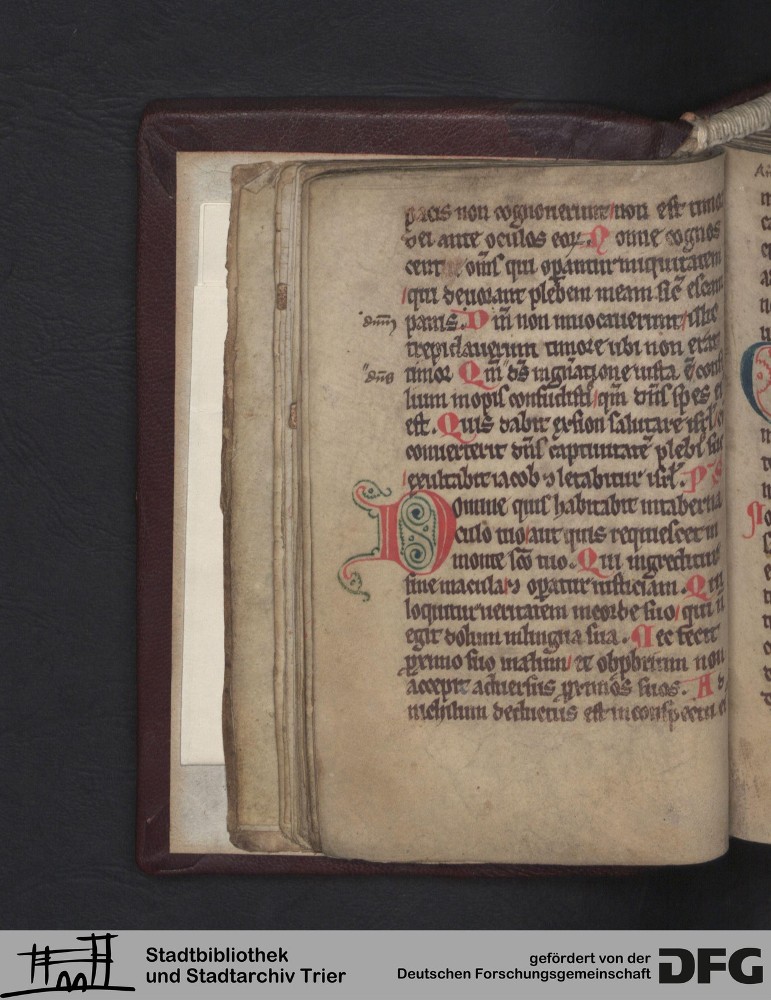 pacis non cognouerunt/non est timor
dei ante oculos eoꝝ. Nonne cognos
cent om̄s qui oꝑantur iniquitatem
/qui deuorant plebem meam sic̄ escam
dn̄m panis. Dm̄ non inuocauerunt/illic
trepidauerunt timore ubi non erat
dn̄s timor Qm̄ ds̄ in gn̄atione iusta ē consi
lium inopis confudistis/qm̄ dn̄s spes ei
est. Quis dabit ex sion salutare isrl̄
conuerterit dn̄s captiuitatē plebis sue
/exultabit iacob ⁊ letabitur isrl̄. Ps
Domine quis habitabit in taberna
culo tuo/aut quis requiescet in
monte scō tuo. Qui ingreditur
sine macula/⁊ oꝑatur iusticiam. Qui
loquitur ueritatem in corde suo/qui n̄
egit dolum in lingua sua. Nec fecit
ꝓximo suo malum/et obꝓbrium non
accepit aduersus ꝓximos suos. Ad
nichilum deductus est in conspectu
Stadtbibliothek
und Stadtarchiv Trier
gefördert von der
Deutschen Forschungsgemeinschaft
DFG